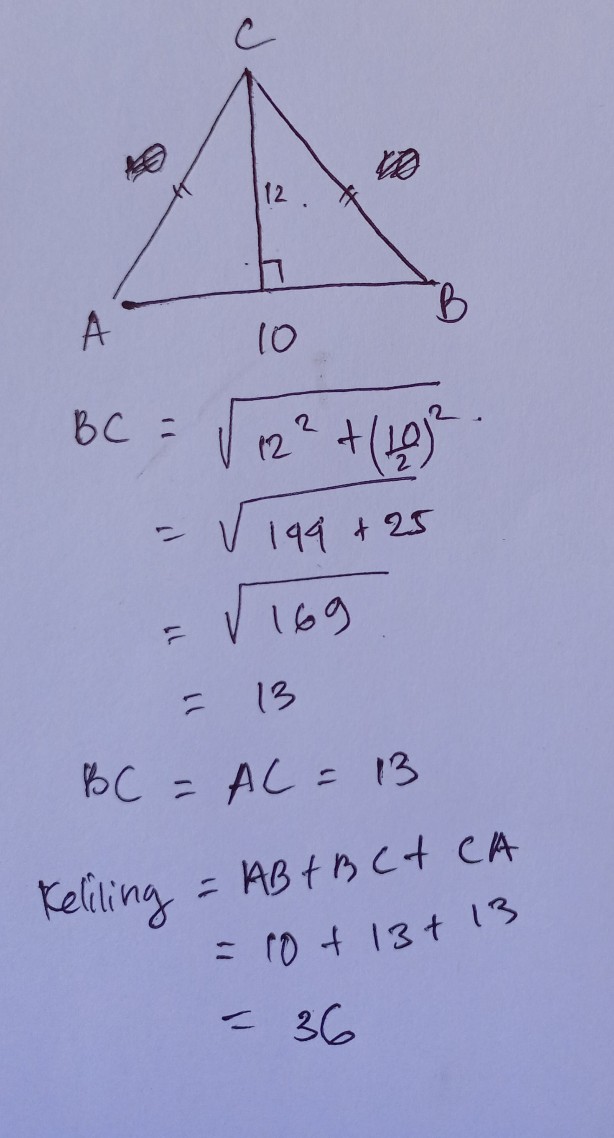 C
12
A
B
10
BC = √(12² + (10/2)²)
= √(144 + 25)
= √169
= 13
BC = AC = 13
Keliling = AB + BC + CA
= 10 + 13 + 13
= 36